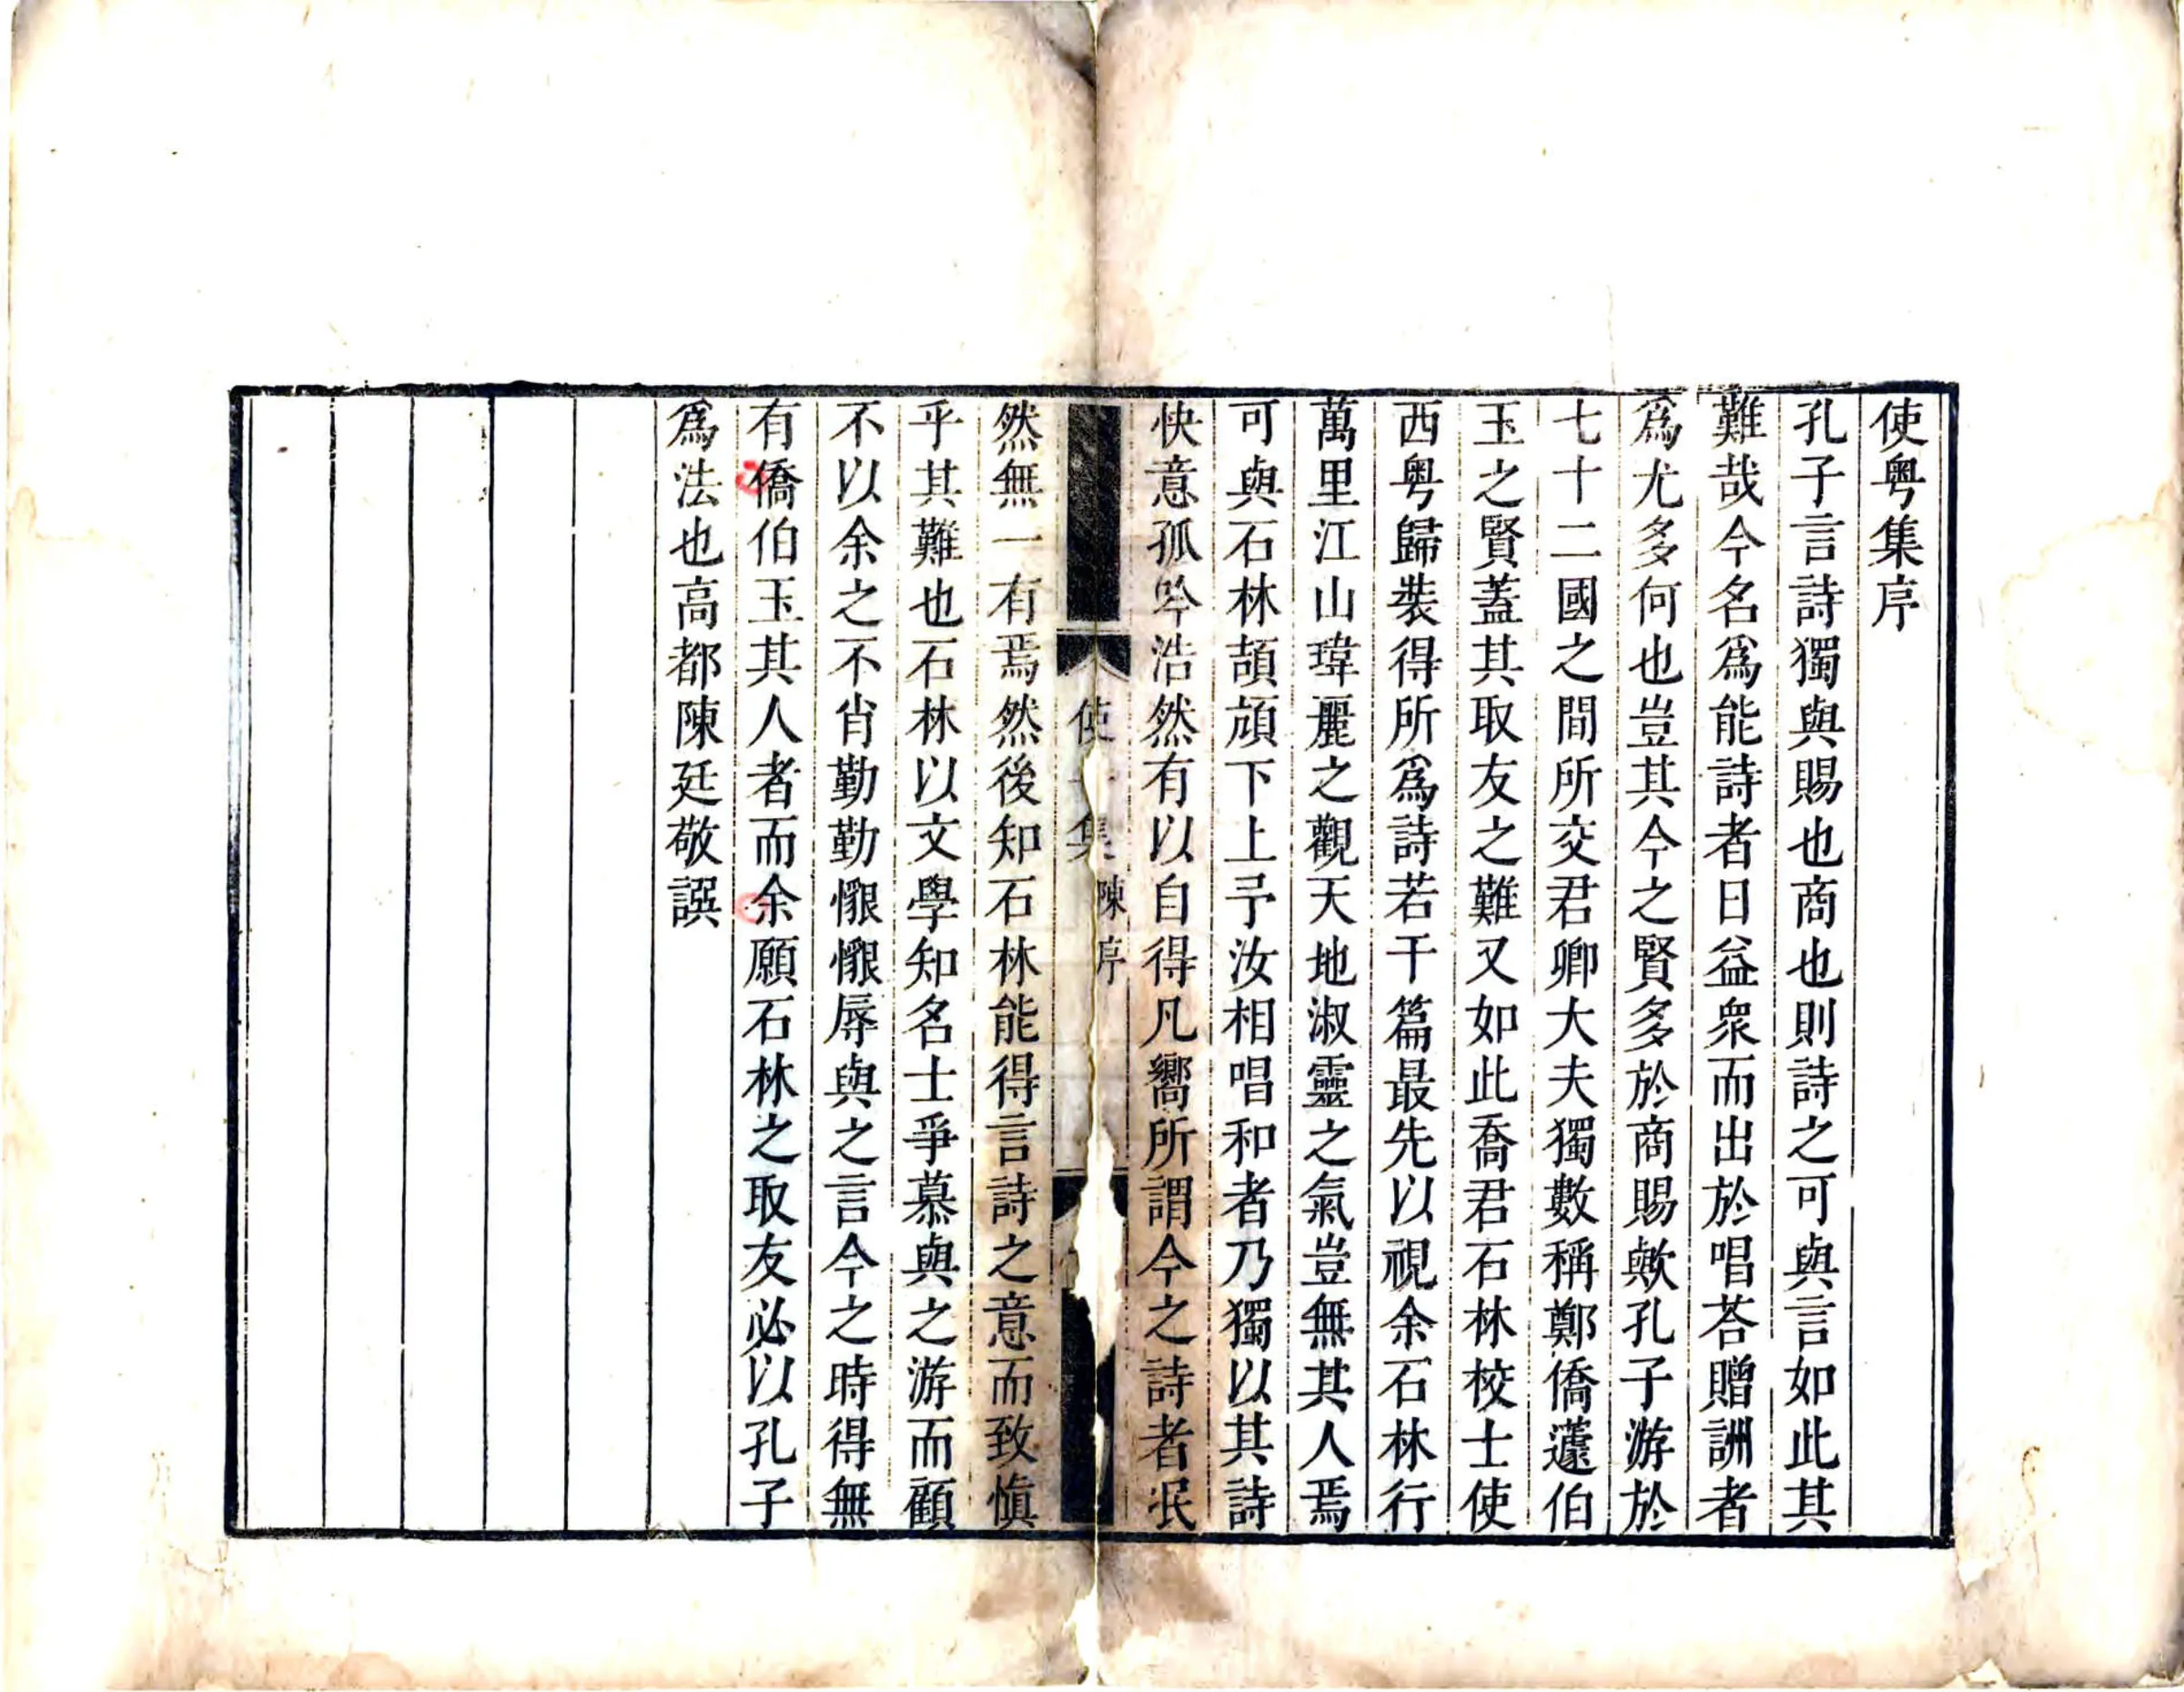 使粤集序
孔子言詩獨與賜也商也則詩之可與言如此其
難哉今名爲能詩者日益衆而出於唱荅贈詶者
爲尤多何也豈其今之賢多於商賜歟孔子游於
七十二國之間所交君卿大夫獨數稱鄭僑蘧伯
玉之賢蓋其取友之難又如此喬君石林校士使
西粤歸裝得所爲詩若干篇最先以視余石林行
萬里江山瑋麗之觀天地淑靈之氣豈無其人焉
可與石林頡頏下上予汝相唱和者乃獨以其詩
快意孤吟浩然有以自得凡嚮所謂今之詩者泯
使 集 陳序
然無一有焉然後知石林能得言詩之意而致愼
乎其難也石林以文學知名士爭慕與之游而顧
不以余之不肖勤勤懇懇辱與之言今之時得無
有僑伯玉其人者而余願石林之取友必以孔子
爲法也高都陳廷敬譔